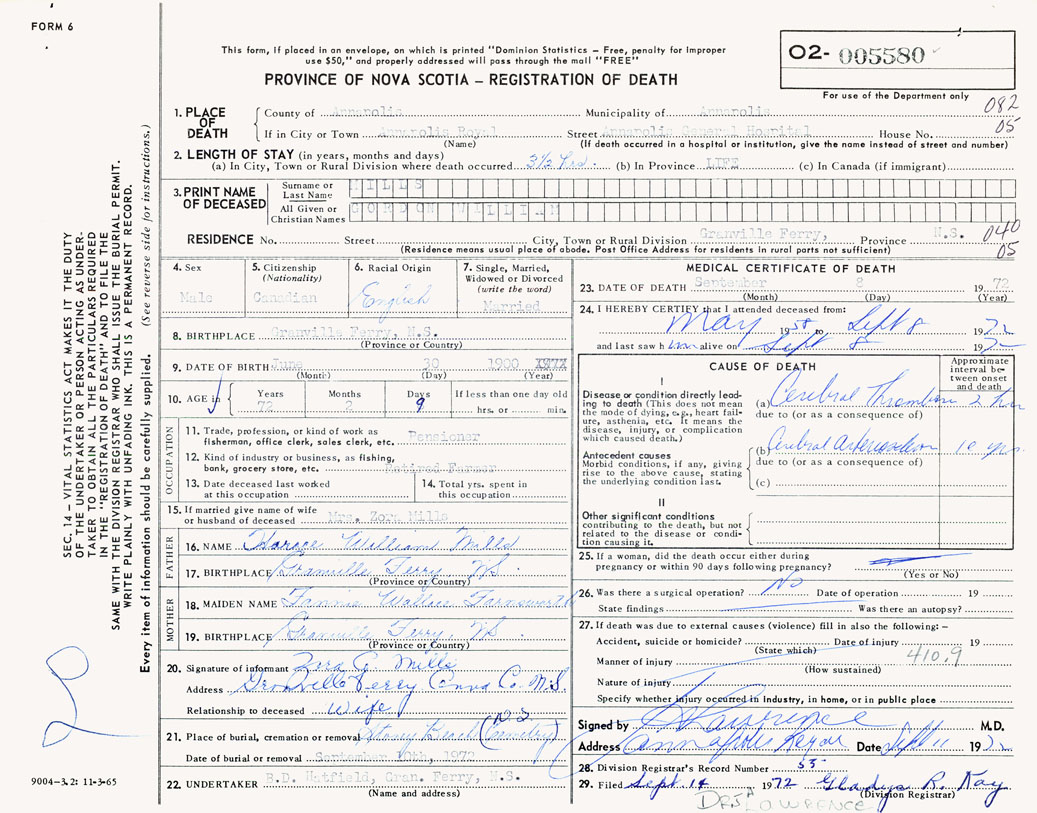 FORM 6
This form, if placed in an envelope, on which is printed "Dominion Statistics – Free, penalty for improper
use $50," and properly addressed will pass through the mail "FREE"
PROVINCE OF NOVA SCOTIA – REGISTRATION OF DEATH
02- 005580
For use of the Department only
082
05
1. PLACE OF DEATH
County of Annapolis Municipality of Annapolis
If in City or Town Annapolis Royal Street Annapolis General Hospital House No.
(Name) (If death occurred in a hospital or institution, give the name instead of street and number)
2. LENGTH OF STAY (in years, months and days)
(a) In City, Town or Rural Division where death occurred 3½ Hrs. (b) In Province LIFE (c) In Canada (if immigrant)
3. PRINT NAME OF DECEASED
Surname or Last Name MILLS
All Given or Christian Names GORDON WILLIAM
RESIDENCE No. Street City, Town or Rural Division Granville Ferry, Province N.S.
(Residence means usual place of abode. Post Office Address for residents in rural parts not sufficient)
040
05
4. Sex
Male
5. Citizenship
(Nationality)
Canadian
6. Racial Origin
English
7. Single, Married,
Widowed or Divorced
(write the word)
Married
8. BIRTHPLACE Granville Ferry, N.S.
(Province or Country)
9. DATE OF BIRTH June 30 1900
(Month) (Day) (Year)
10. AGE in
Years Months Days If less than one day old
72 2 9 hrs. or min.
OCCUPATION
11. Trade, profession, or kind of work as
fisherman, office clerk, sales clerk, etc. Pensioner
12. Kind of industry or business, as fishing,
bank, grocery store, etc. Retired Farmer
13. Date deceased last worked
at this occupation
14. Total yrs. spent in
this occupation
15. If married give name of wife
or husband of deceased Mrs. Zora Mills
FATHER
16. NAME Horace William Mills
17. BIRTHPLACE Granville Ferry, NS
(Province or Country)
MOTHER
18. MAIDEN NAME Fannie Wallace Farnsworth
19. BIRTHPLACE Granville Ferry, NS
(Province or Country)
20. Signature of informant Zora G. Mills
Address Granville Ferry Anna Co. N.S.
Relationship to deceased Wife
21. Place of burial, cremation or removal Stoney Beach (Cemetery) N.S.
Date of burial or removal September 10th, 1972
22. UNDERTAKER B.D. Hatfield, Gran. Ferry, N.S.
(Name and address)
MEDICAL CERTIFICATE OF DEATH
23. DATE OF DEATH September 8 1972
(Month) (Day) (Year)
24. I HEREBY CERTIFY that I attended deceased from:
May 1958 to Sept 8 1972
and last saw him alive on Sept 8 1972
CAUSE OF DEATH
Approximate
interval be-
tween onset
and death
I
Disease or condition directly lead-
ing to death (This does not mean
the mode of dying, e.g., heart fail-
ure, asthenia, etc. It means the
disease, injury, or complication
which caused death.)
(a) Cerebral Thrombosis 2 hrs
due to (or as a consequence of)
Antecedent causes
Morbid conditions, if any, giving
rise to the above cause, stating
the underlying condition last.
(b) Cerebral 10 yrs.
due to (or as a consequence of)
(c)
II
Other significant conditions
contributing to the death, but not
related to the disease or condi-
tion causing it.
25. If a woman, did the death occur either during
pregnancy or within 90 days following pregnancy?
(Yes or No)
26. Was there a surgical operation? No Date of operation 19
State findings Was there an autopsy?
27. If death was due to external causes (violence) fill in also the following:–
Accident, suicide or homicide? Date of injury 19
(State which)
Manner of injury 410.9
(How sustained)
Nature of injury
Specify whether injury occurred in industry, in home, or in public place
Signed by M.D.
Address Annapolis Royal Date Sept 11 1972
28. Division Registrar's Record Number 55
29. Filed Sept. 14 1972 Gladys R. Kay
(Division Registrar)
DRS LAWRENCE
SEC. 14 – VITAL STATISTICS ACT MAKES IT THE DUTY
OF THE UNDERTAKER OR PERSON ACTING AS UNDER-
TAKER TO OBTAIN ALL THE PARTICULARS REQUIRED
IN THE "REGISTRATION OF DEATH" AND TO FILE THE
SAME WITH THE DIVISION REGISTRAR WHO SHALL ISSUE THE BURIAL PERMIT.
WRITE PLAINLY WITH UNFADING INK. THIS IS A PERMANENT RECORD.
Every item of information should be carefully supplied. (See reverse side for instructions.)
9004–3.2: 11-3-65